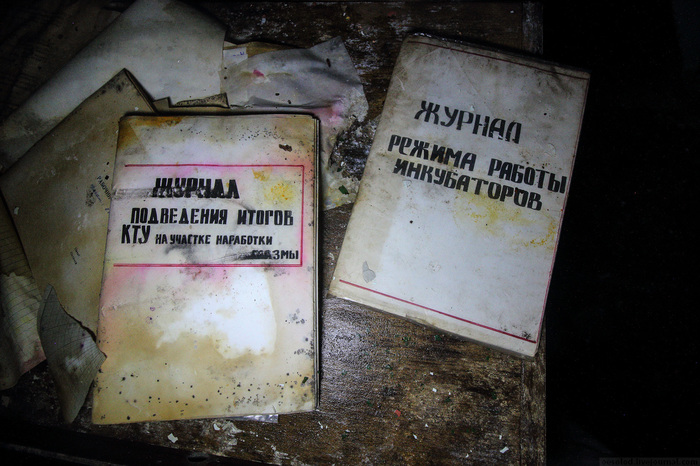 ЖУРНАЛ
ПОДВЕДЕНИЯ ИТОГОВ
КТУ НА УЧАСТКЕ НАРАБОТКИ
ЖУРНАЛ
РЕЖИМА РАБОТЫ
ИНКУБАТОРОВ